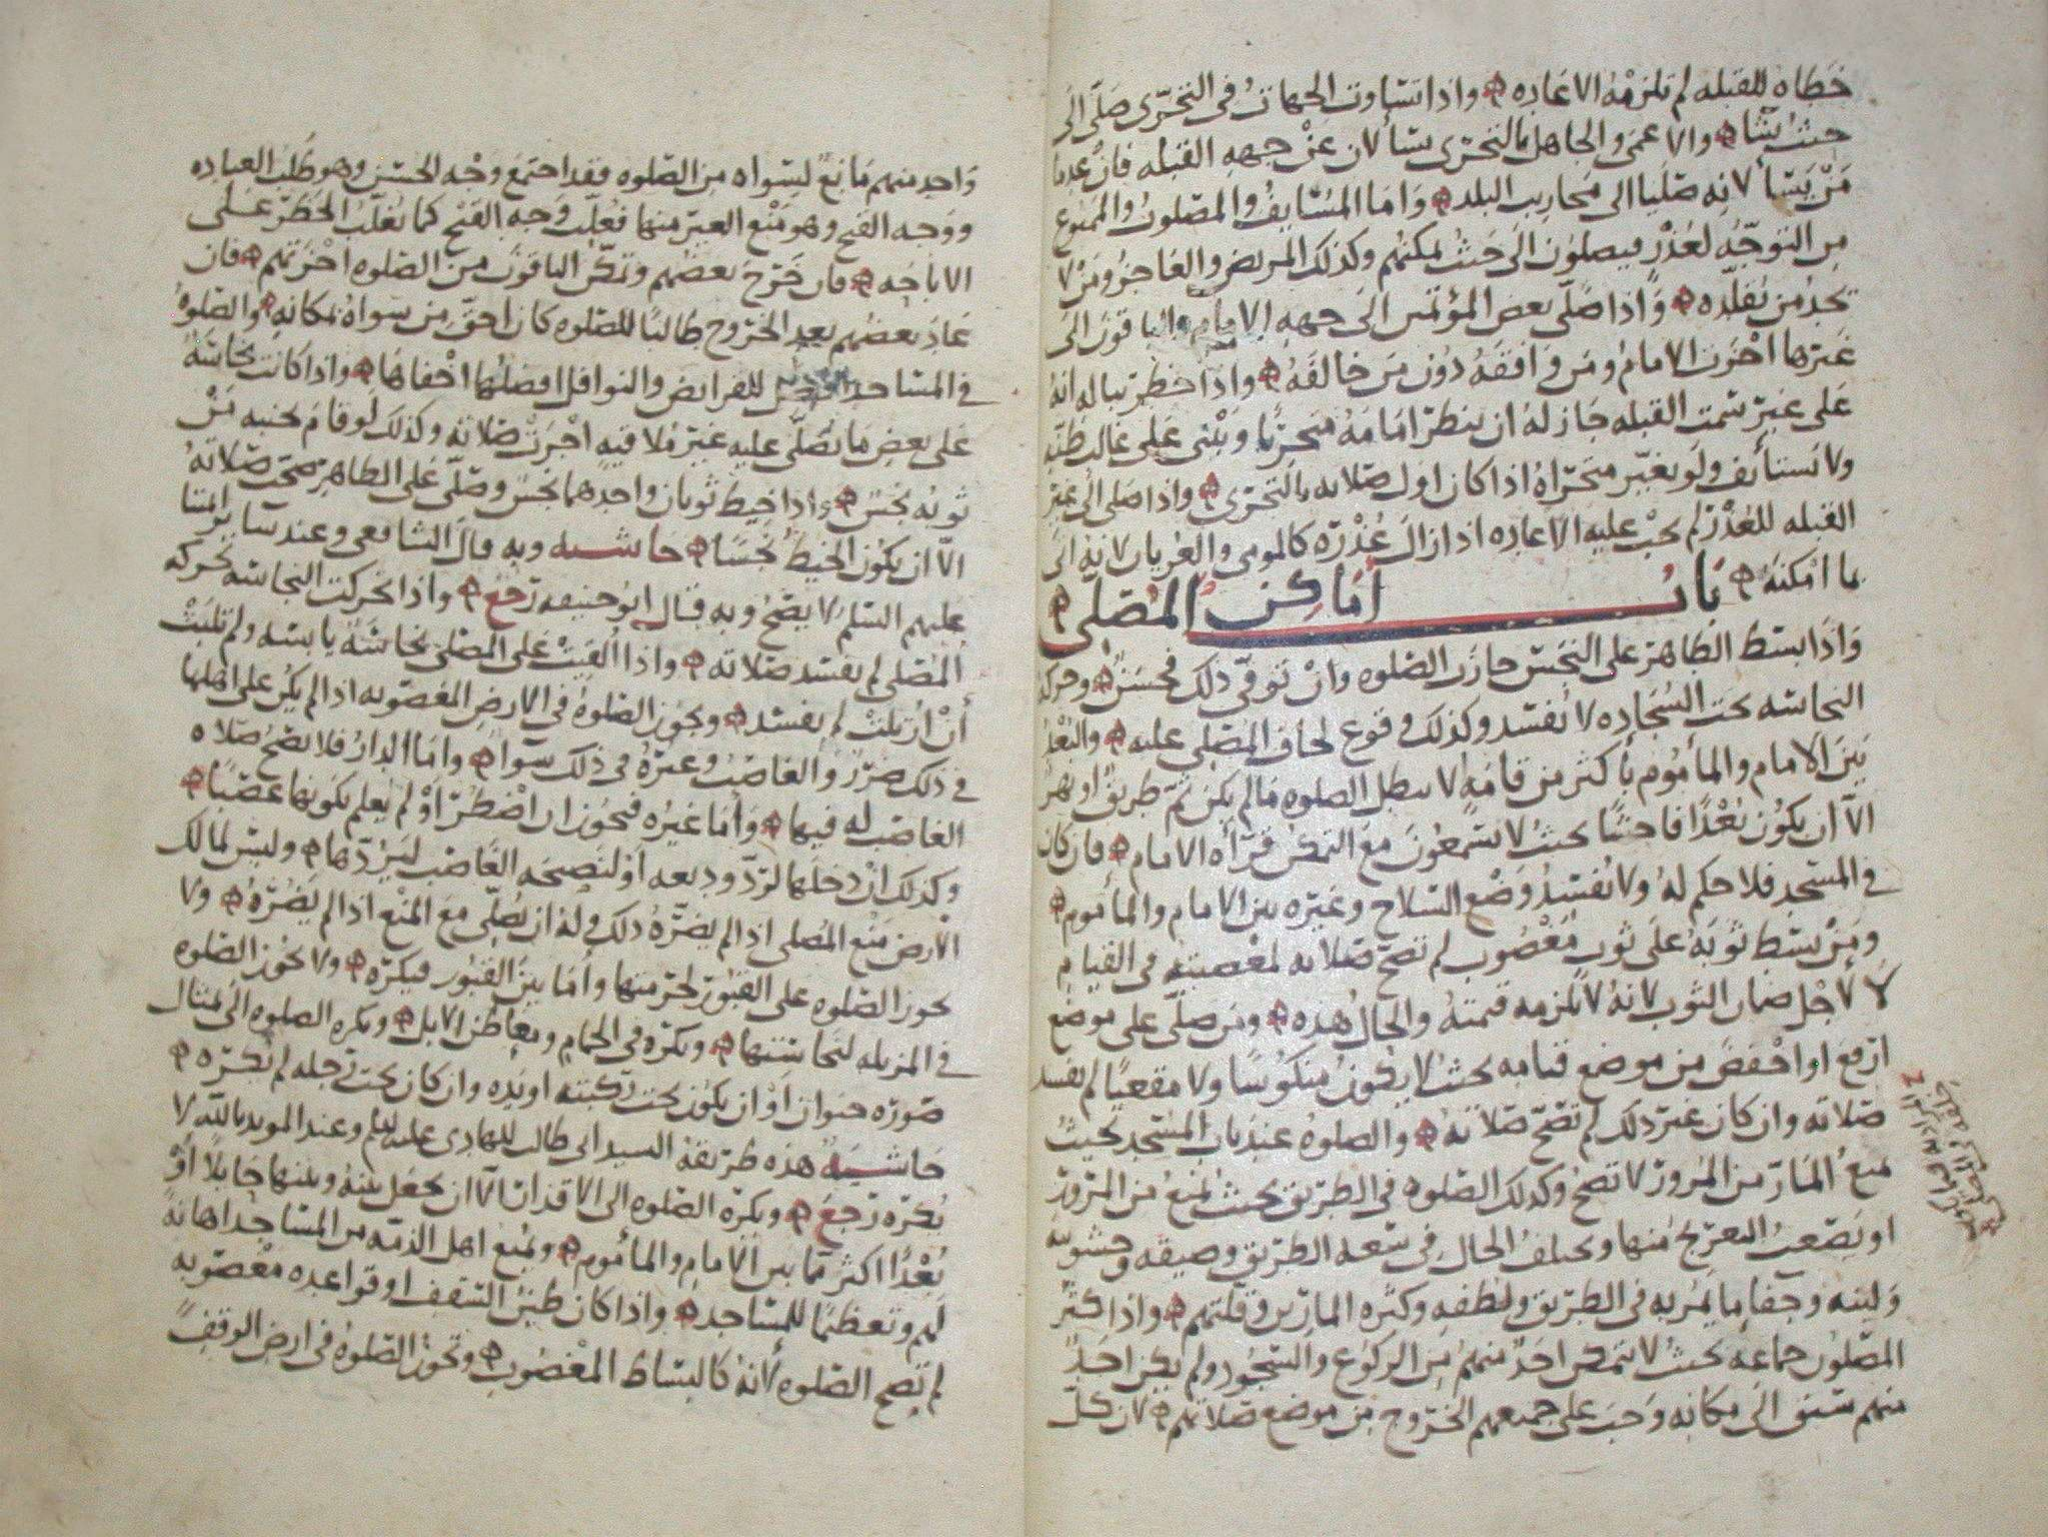 خطاه للقبله لم تلزمه الاعاده واذا تساوت الجهات في التحري صلى الى
حيث يشا والاعمى والجاهل بالتحري يسألان عن جهه القبله فان عدما
من يسألانه صليا الى محاريب البلد واما المسايف والمصلوب والممنوع
من التوجه لعذر فيصلون الى حيث يمكنهم وكذلك المريض والعاجز ومن لا
يجد من يقلده واذا صلى بعض المؤتمين الى جهه الامام والباقون الى
غيرها اجزت الامام ومن وافقه دون من خالفه واذا خطر بباله انه
على غير سمت القبله جاز له ان ينظر امامه متحريا ويبنى على غالب ظنه
ولا يستأنف ولو تغير متحراه اذا كان اول صلاته بالتحري واذا صلى الى غير
القبله للعذر لم يجب عليه الاعاده اذا زال عذره كالمومى والعريان لانه اتى
بما امكنه باب اماكن المصلي
واذا بسط الطاهر على النجس جازت الصلوه وان توقى ذلك فحسن وحركه
النجاسه تحت السجاده لا تفسد وكذلك وقوع لحاف المصلي عليه والبعد
بين الامام والمأموم بأكثر من قامه لا يبطل الصلوه ما لم يكن ثم طريق او نهر
الا ان يكون بعدا فاحشا بحيث لا يسمعون مع التمكن قرأه الامام فان كان
في المسجد فلا حكم له ولا يفسد وضع السلاح وغيره بين الامام والمأموم
ومن بسط ثوبه على ثوب مغصوب لم تصح صلاته لمعصيته في القيام
لا لأجل ضمان الثوب لانه لا تلزمه قيمته والحال هذه ومن صلى على موضع
ارفع او اخفض من موضع قيامه بحيث لا يكون منكوسا ولا مقعيا لم تفسد
صلاته وان كان غير ذلك لم تصح صلاته والصلوه عند باب المسجد بحيث
يمنع المار من المرور لا تصح وكذلك الصلوه في الطريق بحيث يمنع من المرور
او يصعب التعريج منها ويختلف الحال في سعه الطريق وضيقه وخشونته
ولينه وجفا ما يمر به في الطريق ولطفه وكثره المارين وقلتهم واذا كثر
المصلون جماعه بحيث لا يتمكن احد منهم من الركوع والسجود ولم يكن احد
منهم سبق الى مكانه وجب على جميعهم الخروج من موضع صلاتهم لان كل
واحد منهم مانع لسواه من الصلوه فقد اجتمع وجه الحسن وهو طلب العباده
ووجه القبح وهو منع الغير منها فغلب وجه القبح كما يغلب الحظر على
الاباحه فان خرج بعضهم وتمكن الباقون من الصلوه اجزتهم فان
عاد بعضهم بعد الخروج طالبا للصلوه كان احق من سواه بمكانه والصلوه
في المساجد افضل للفرايض والنوافل افضلها اخفاها واذا كانت نجاسة
على بعض ما يصلى عليه غير ملاقيه اجزت صلاته وكذلك لو قام بجنبه من
ثوبه نجس واذا خيط ثوبان واحدهما نجس وصلى على الطاهر صحت صلاته
الا ان يكون الخيط نجسا حاشيه وبه قال الشافعي وعند ساير
عليهم السلم لا يصح وبه قال ابو حنيفه رجع واذا تحركت النجاسه بحركه
المصلي لم يفسد صلاته واذا القيت على المصلي نجاسة يابسه ولم تلبث
أن ازيلت لم يفسد ويجوز الصلوه في الارض المغصوبه اذا لم يكن على اهلها
في ذلك ضرر والغاصب وغيره في ذلك سوا واما الدار فلا تصح صلاه
الغاصب له فيها وأما غيره فيجوز ان اضطر او لم يعلم بكونها غصبا
وكذلك ان دخلها لرد وديعه او لنصيحه الغاصب ليردها وليس لمالك
الارض منع المصلي اذا لم يضره ذلك وله ان يصلي مع المنع اذا لم يضره ولا
يجوز الصلوه على القبور لحرمتها وأما بين القبور فيكره ولا يجوز الصلوه
في المزبله لنجاستها ويكره في الحمام ومعاطن الابل ويكره الصلوه الى تمثال
صوره حيوان او ان يكون تحت ركبته او يده وان كان تحت رجله لم يكره
حاشيه هذه طريقة السيد ابي طالب للهادي عليه السلم وعند المويد بالله لا
يكره رجع ويكره الصلوه الى الاقذار الا ان يجعل بينه وبينها حايلا أو
بعدا اكثر مما بين الامام والمأموم ويمنع اهل الذمه من المساجد اهانة
لهم وتعظيما للمساجد واذا كان طين السقف او قواعده مغصوبه
لم تصح الصلوه لأنه كالبساط المغصوب ويجوز الصلوه في ارض الوقف